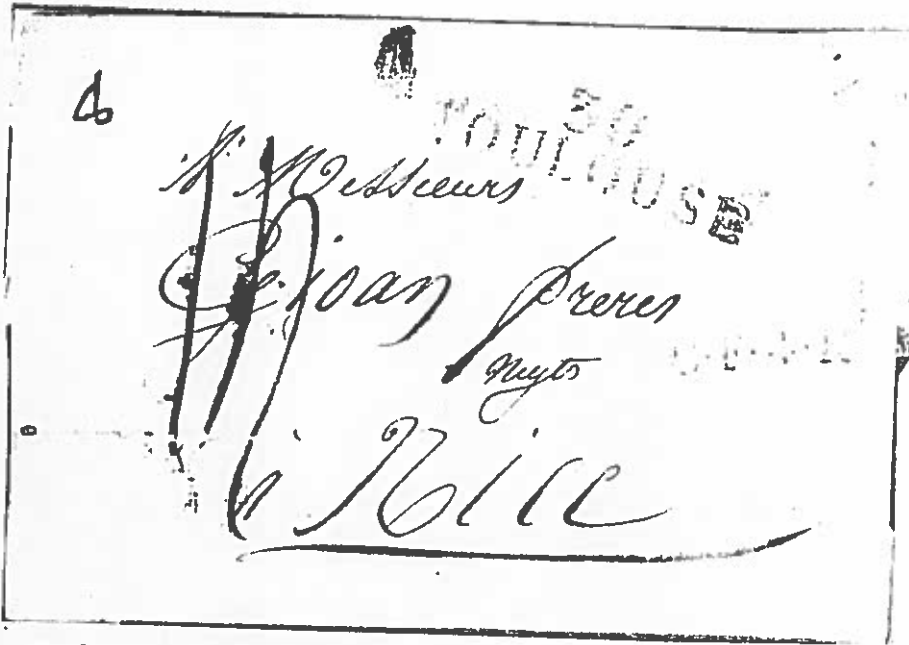 30
TOULOUSE
Messieurs
Dejoan freres
Negts
à Nice